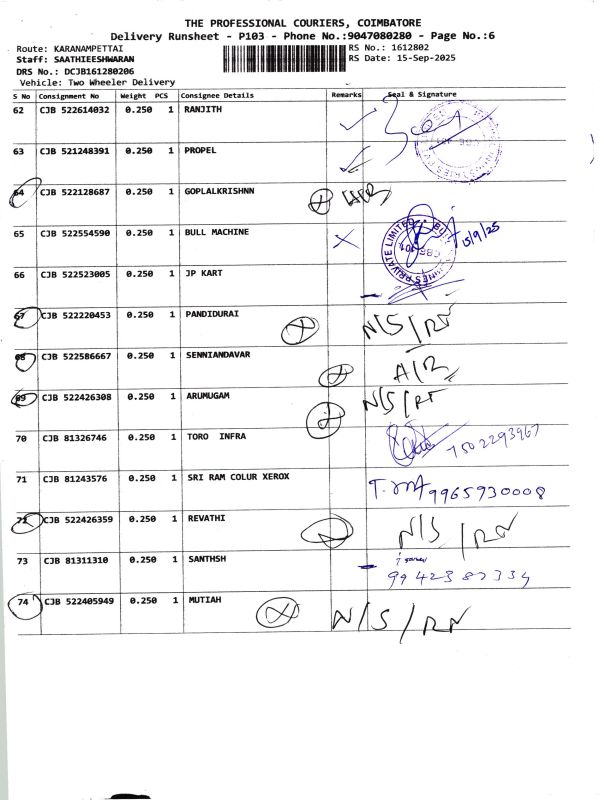 THE PROFESSIONAL COURIERS, COIMBATORE
Delivery Runsheet - P103 - Phone No.:9047080280 - Page No.:6
Route: KARANAMPETTAI RS No.: 1612802
Staff: SAATHIEESHWARAN RS Date: 15-Sep-2025
DRS No.: DCJB161280206
Vehicle: Two Wheeler Delivery
S No Consignment No Weight PCS Consignee Details Remarks Seal & Signature
62 CJB 522614032 0.250 1 RANJITH
63 CJB 521248391 0.250 1 PROPEL
64 CJB 522128687 0.250 1 GOPLALKRISHNN
65 CJB 522554590 0.250 1 BULL MACHINE 15/9/25
PRIVATE LIMITED
66 CJB 522523005 0.250 1 JP KART
67 CJB 522220453 0.250 1 PANDIDURAI N/S/RN
68 CJB 522586667 0.250 1 SENNIANDAVAR A/R
69 CJB 522426308 0.250 1 ARUMUGAM N/S/RN
70 CJB 81326746 0.250 1 TORO INFRA 7502293967
71 CJB 81243576 0.250 1 SRI RAM COLUR XEROX 9965930008
72 CJB 522426359 0.250 1 REVATHI N/S/RN
73 CJB 81311310 0.250 1 SANTHSH 9942387334
74 CJB 522405949 0.250 1 MUTIAH N/S/RN